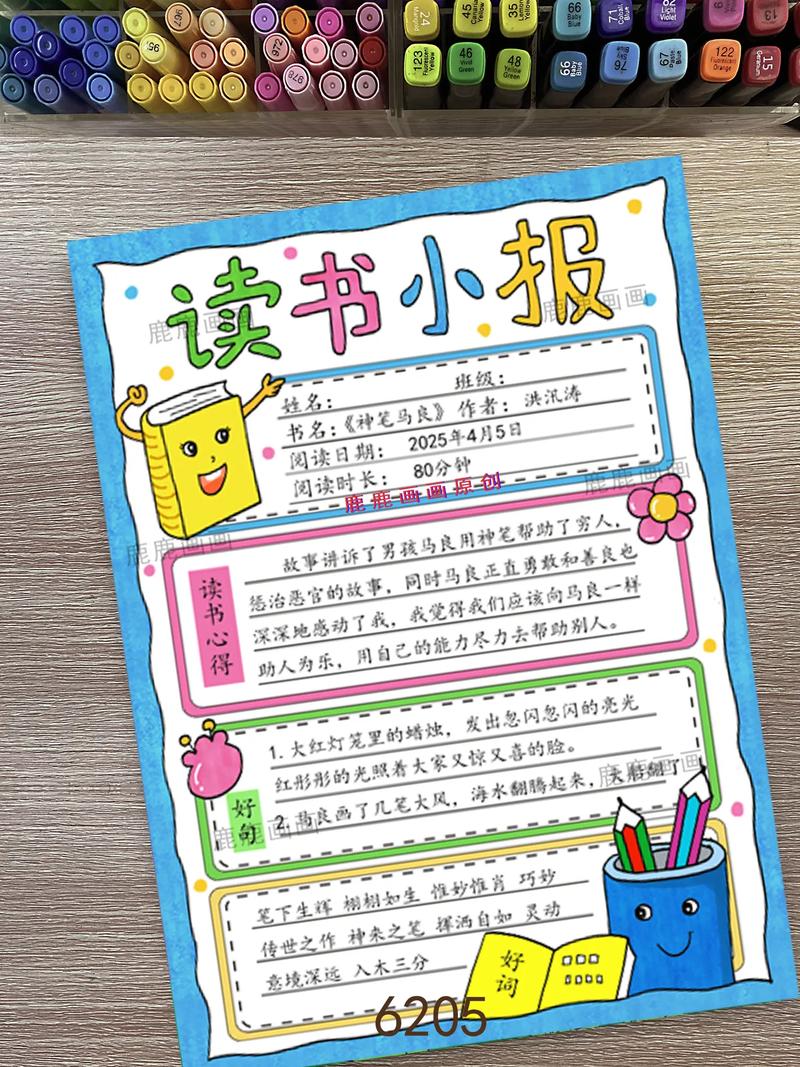 读书小报
姓名： 班级：
书名：《神笔马良》 作者： 洪汛涛
阅读日期： 2025年4月5日
阅读时长： 80分钟
鹿鹿画画原创
读书心得
故事讲诉了男孩马良用神笔帮助了穷人，
惩治恶官的故事，同时马良正直勇敢和善良也
深深地感动了我，我觉得我们应该向马良一样
助人为乐，用自己的能力尽力去帮助别人。
1. 大红灯笼里的蜡烛，发出忽闪忽闪的亮光
红彤彤的光照着大家又惊又喜的脸。
好句
2. 马良画了几笔大风，海水翻腾起来，大船翻了
笔下生辉 栩栩如生 惟妙惟肖 巧妙
传世之作 神来之笔 挥洒自如 灵动
意境深远 入木三分
好词
6205
鹿鹿画画
鹿鹿画画
鹿鹿画画
鹿鹿画画
鹿鹿画画
鹿鹿画画
24
123
46
Vivid Green
48
Yellow Green
66
Baby Blue
71
76
67
122
Fluorescent Orange
15